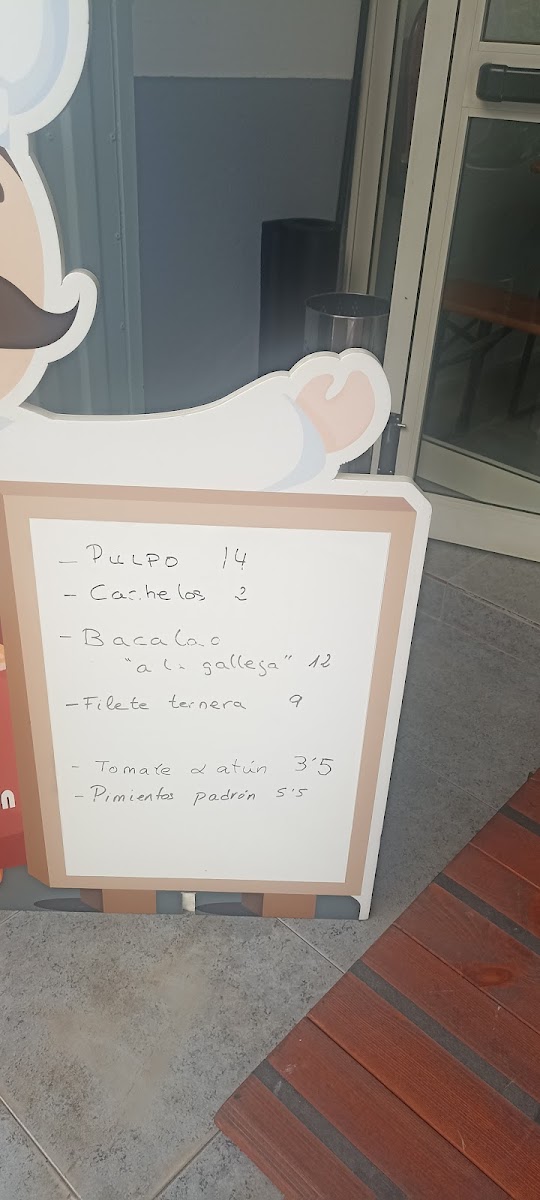 - PULPO 14
- Cachelos 2
- Bacalao
"a la gallega" 12
- Filete ternera 9
- Tomate & atún 3'5
- Pimientos padrón 5'5